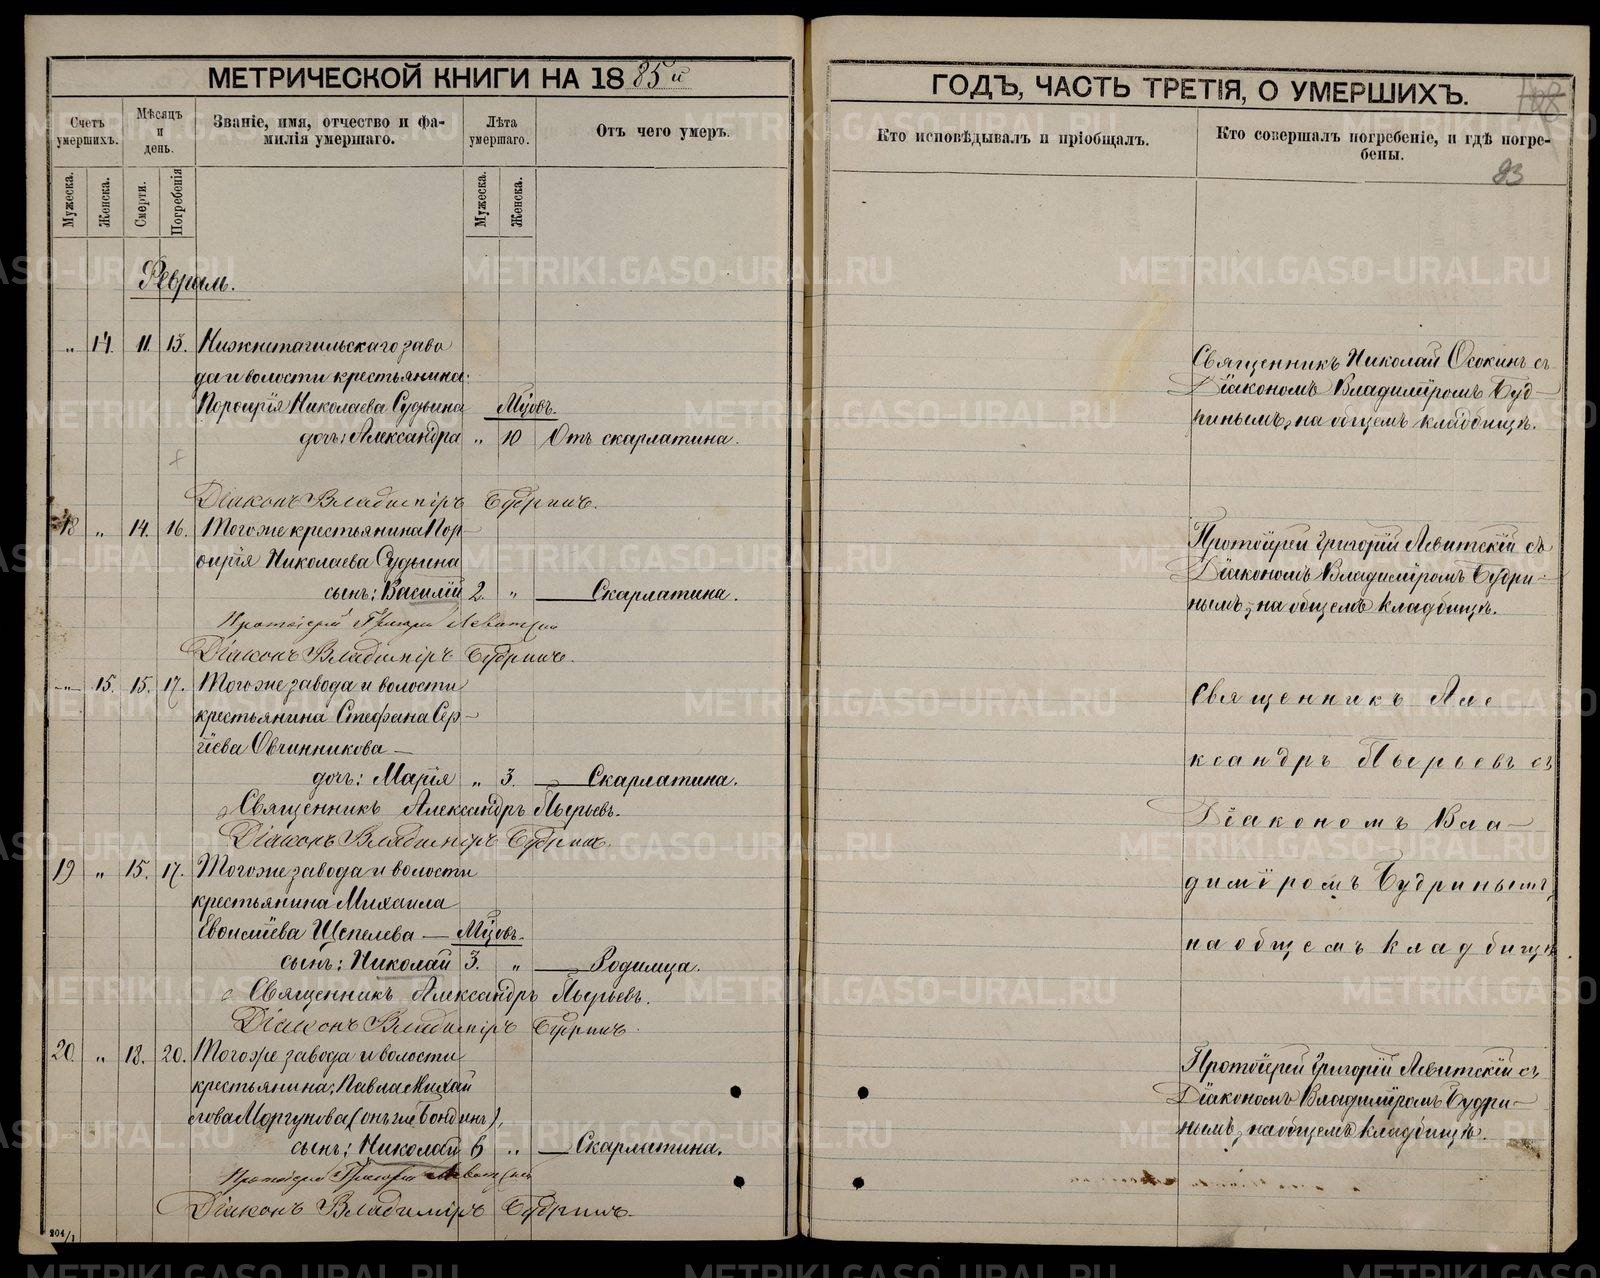 МЕТРИЧЕСКОЙ КНИГИ НА 1885й
ГОДЪ, ЧАСТЬ ТРЕТІЯ, О УМЕРШИХЪ.
108
83
Счетъ умершихъ.
Мѣсяцъ и день.
Званіе, имя, отчество и фамилія умершаго.
Лѣта умершаго.
Отъ чего умеръ.
Кто исповѣдывалъ и пріобщалъ.
Кто совершалъ погребеніе, и гдѣ погребены.
Мужеска.
Женска.
Смерти.
Погребенія
Мужеска.
Женска.
Февраль.
„ 14. 11. 13. Нижнетагильскаго заво
да и волости крестьянина
Порфирія Николаева Судьина Мѣсѣ.
дочь: Александра „ 10 Отъ скарлатина.
Священникъ Николай Осокинъ съ
Діакономъ Владиміромъ Буд-
ринымъ, на общемъ кладбищѣ.
Діаконъ Владиміръ Будринъ.
18 „ 14. 16. Тогоже крестьянина Пор-
фирія Николаева Судьина
сынъ: Василій 2. „ Скарлатина.
Протоіерей Григорій Левитскій съ
Діакономъ Владиміромъ Будри-
нымъ, на общемъ кладбищѣ.
Протоіерей Григорій Левитскій
Діаконъ Владиміръ Будринъ.
„ 15. 15. 17. Тогоже завода и волости
крестьянина Стефана Сер-
гіева Овчинникова —
дочь: Марія „ 3. Скарлатина.
Священникъ Александръ
Діаконъ Владиміръ Будринъ.
19 „ 15. 17. Тогоже завода и волости
крестьянина Михаила
Щепелева —
сынъ: Николай 3. „ Родимца.
Священникъ Александръ
Діаконъ Владиміръ Будринъ.
Священникъ Але
ксандръ съ
Діакономъ Вла-
диміромъ Будринымъ,
на общемъ кладбищѣ.
20. „ 18. 20. Тогоже завода и волости
крестьянина Павла Михай
лова Моргунова (онъ же Бондинъ),
сынъ: Николай 6 „ Скарлатина.
Протоіерей Григорій Левитскій съ
Діакономъ Владиміромъ Будри-
нымъ, на общемъ кладбищѣ.
Протоіерей Григорій Левитскій
Діаконъ Владиміръ Будринъ.
204/1
METRIKI.GASO-URAL.RU